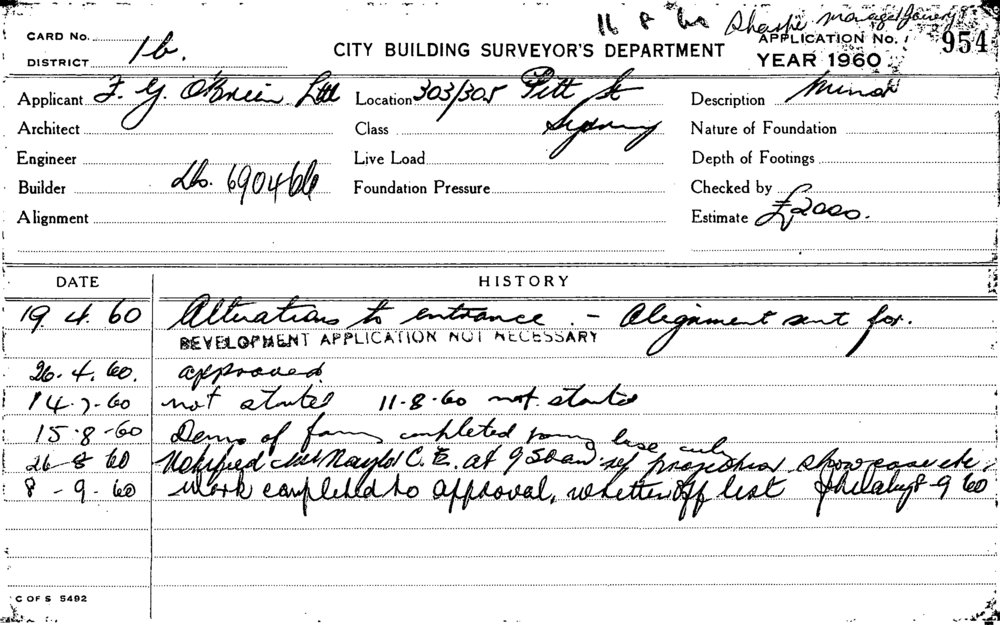 16 8 60 Sharpe manager Joinery
CARD No.
CITY BUILDING SURVEYOR'S DEPARTMENT
APPLICATION No. 954
DISTRICT 1b.
YEAR 1960
Applicant F. G. O'Brien Ltd Location 303/305 Pitt St Description Minor
Architect Class Sydney Nature of Foundation
Engineer Live Load Depth of Footings
Builder 690466 Foundation Pressure Checked by
Alignment Estimate £2000.
DATE HISTORY
19. 4. 60 Alterations to entrance. - Alignment sent for.
DEVELOPMENT APPLICATION NOT NECESSARY
26. 4. 60. approved.
14-7-60 not started 11-8-60 not started
15-8-60 Demo of completed base only
26-8 60 Notified Naylor C. E. at 9 50 am ref projection showcase etc.
8-9-60 Work completed to approval, off list 8-9 60
C OF S 5492